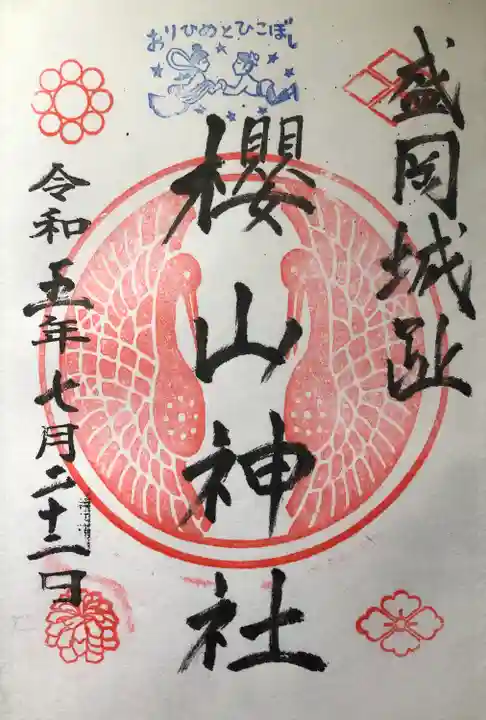 おりひめとひこぼし
盛岡城趾
櫻山神社
令和五年七月二十二日